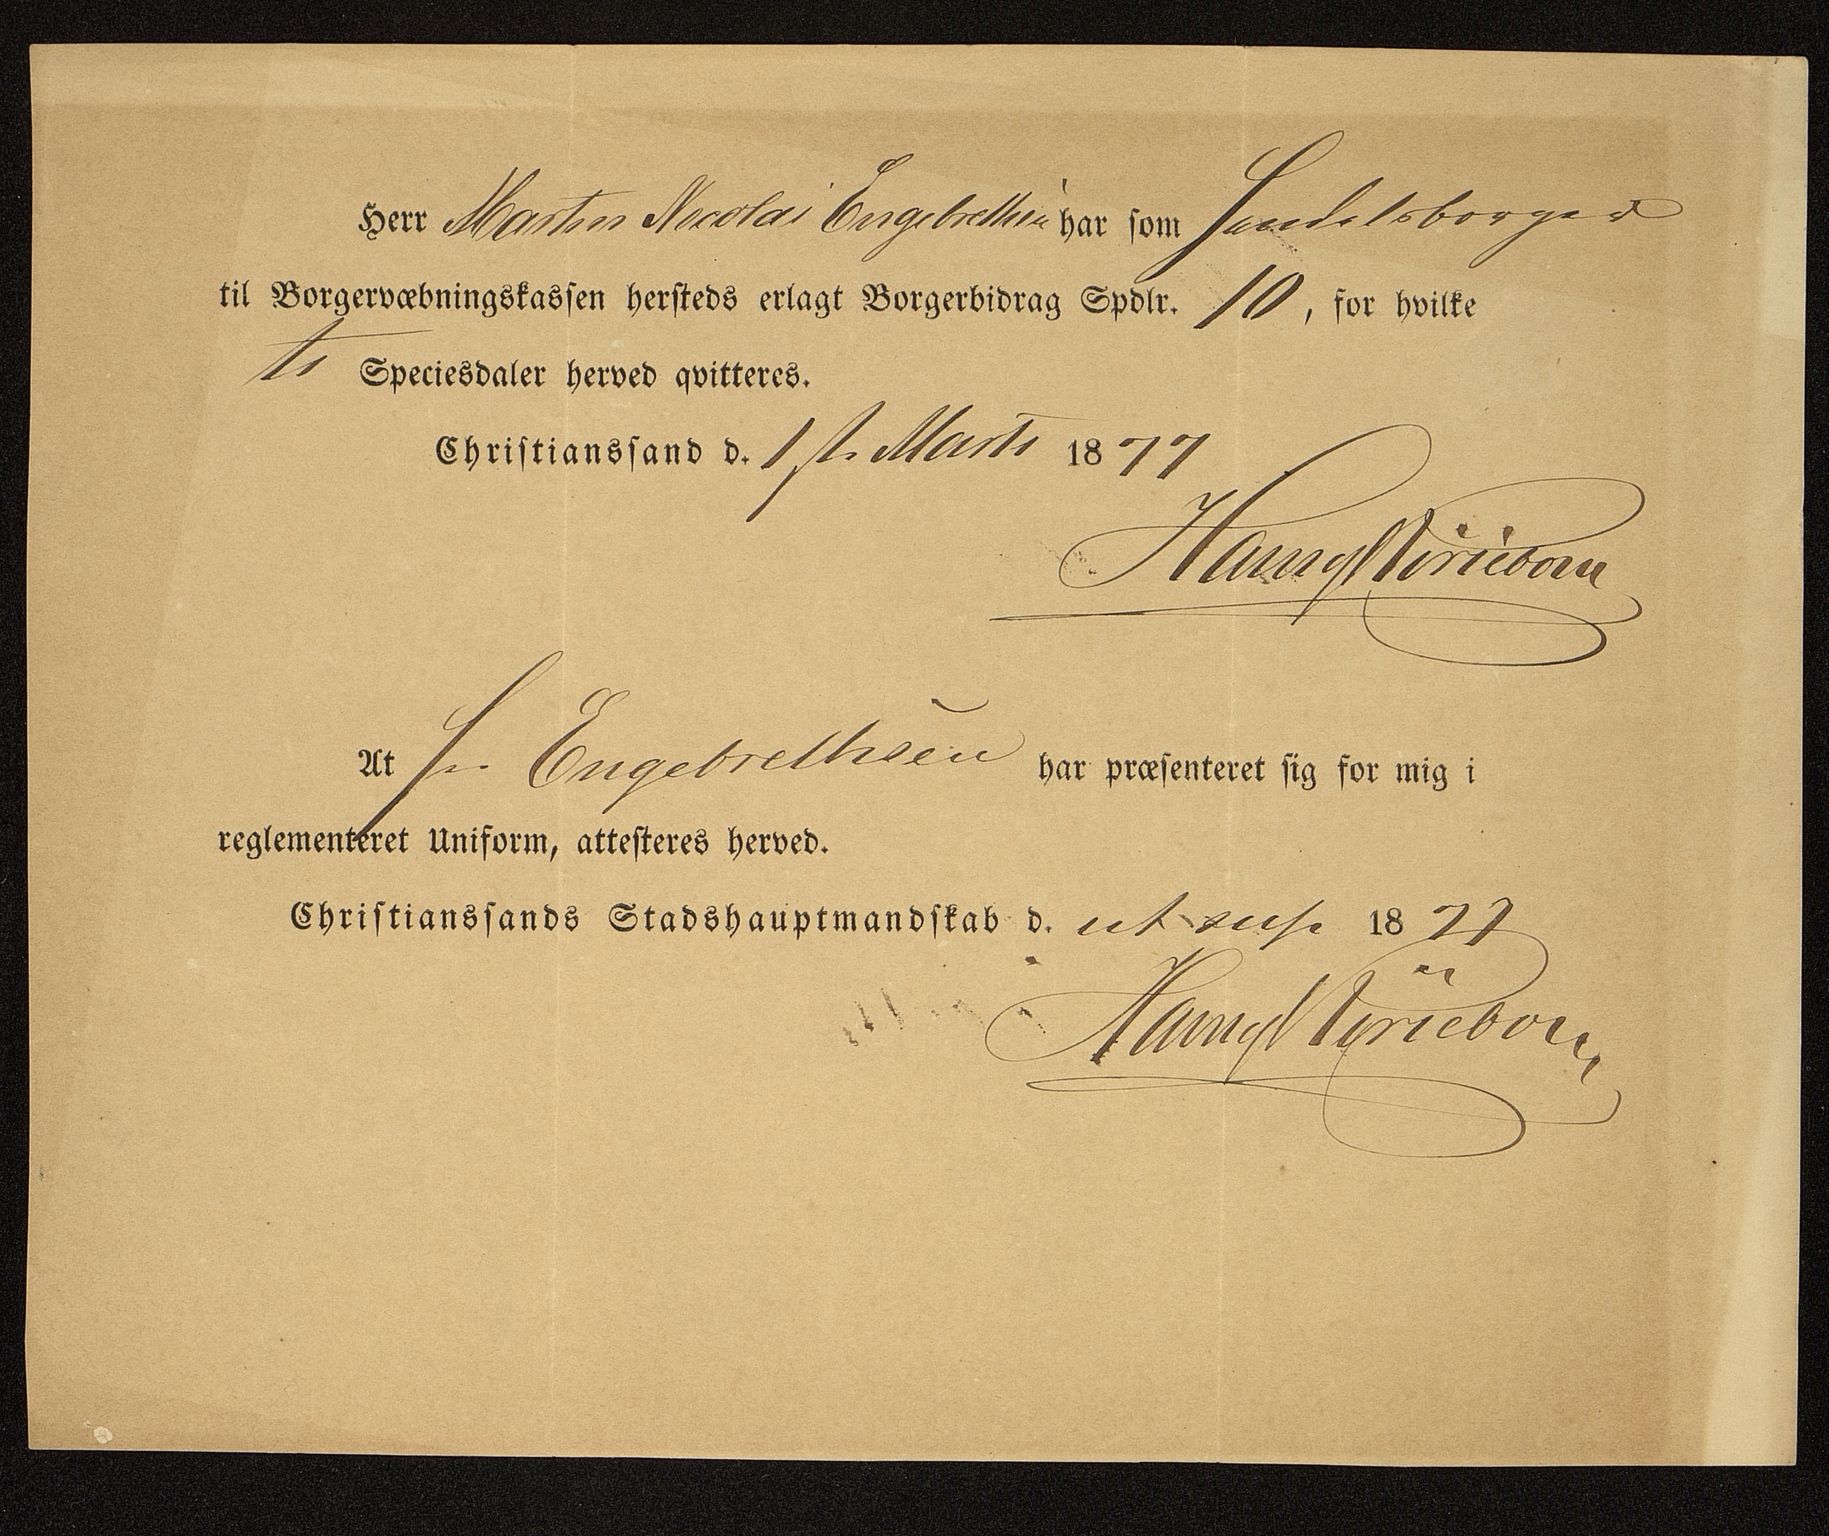 Herr Martin Nicolai Engebrethsen har som Handelsborger
til Borgervæbningskassen hersteds erlagt Borgerbidrag Spdlr. 10, for hvilke
ti Speciesdaler herved qvitteres.
Christianssand d. 1ste Marts 1877
At Hr. Engebrethsen har præsenteret sig for mig i
reglementeret Uniform, attesteres herved.
Christianssands Stadshauptmandskab d. ut sup 1877